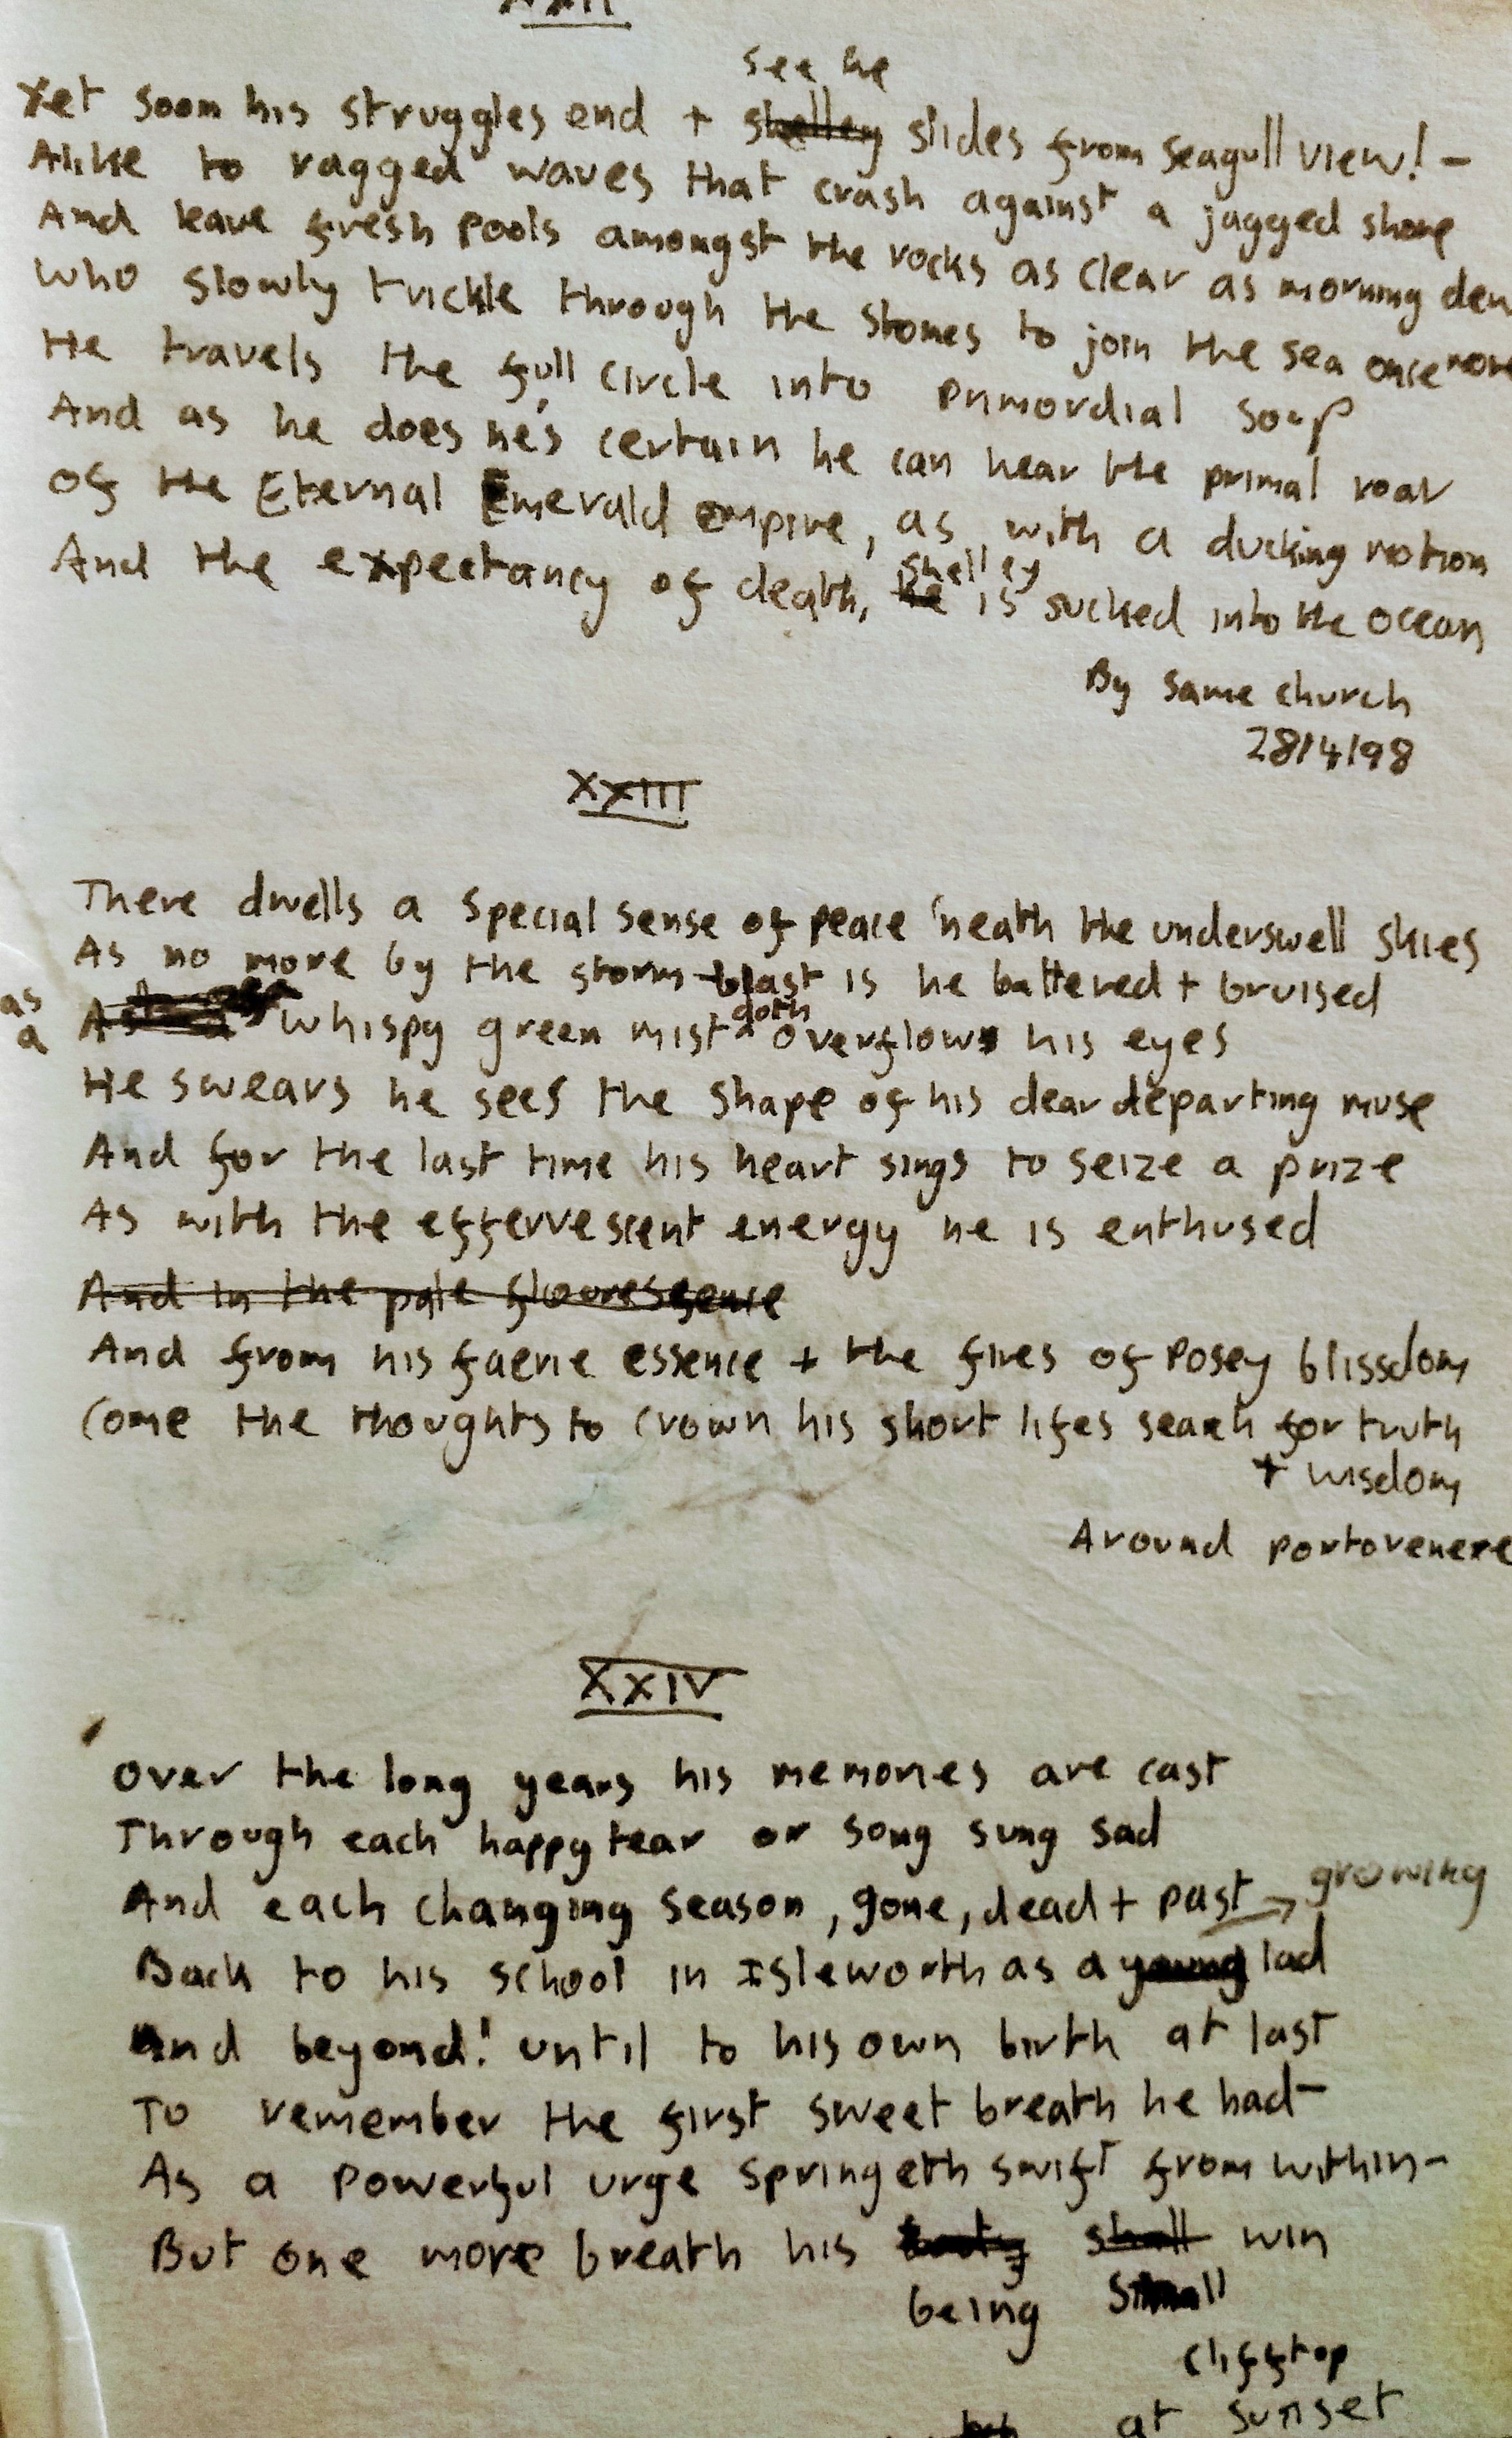 XXII
see he
Yet soon his struggles end + shelley slides from seagull view! -
Alike to ragged waves that crash against a jagged shore
And leave fresh pools amongst the rocks as clear as morning dew
who slowly trickle through the stones to join the sea once more
He travels the full circle into primordial soup
And as he does he's certain he can hear the primal roar
of the Eternal Emerald empire, as with a ducking motion
shelley
And the expectancy of death, he is sucked into the ocean
By same church
28/4/98
XXIII
There dwells a special sense of peace 'neath the underswell skies
As no more by the storm-blast is he battered + bruised
as
doth
a whispy green mist overflow his eyes
He swears he sees the shape of his dear departing muse
And for the last time his heart sings to seize a prize
As with the effervescent energy he is enthused
And in the pale flouressence
And from his faerie essence + the fires of Posey blissdom
Come the thoughts to crown his short lifes search for truth
+ wisdom
Around portovenere
XXIV
over the long years his memories are cast
Through each happy tear or song sung sad
And each changing season, gone, dead + past → growing
Back to his school in Isleworth as a young lad
And beyond! until to his own birth at last
To remember the first sweet breath he had -
As a powerful urge springeth swift from within -
But one more breath his body shall win
being
clifftop
at sunset